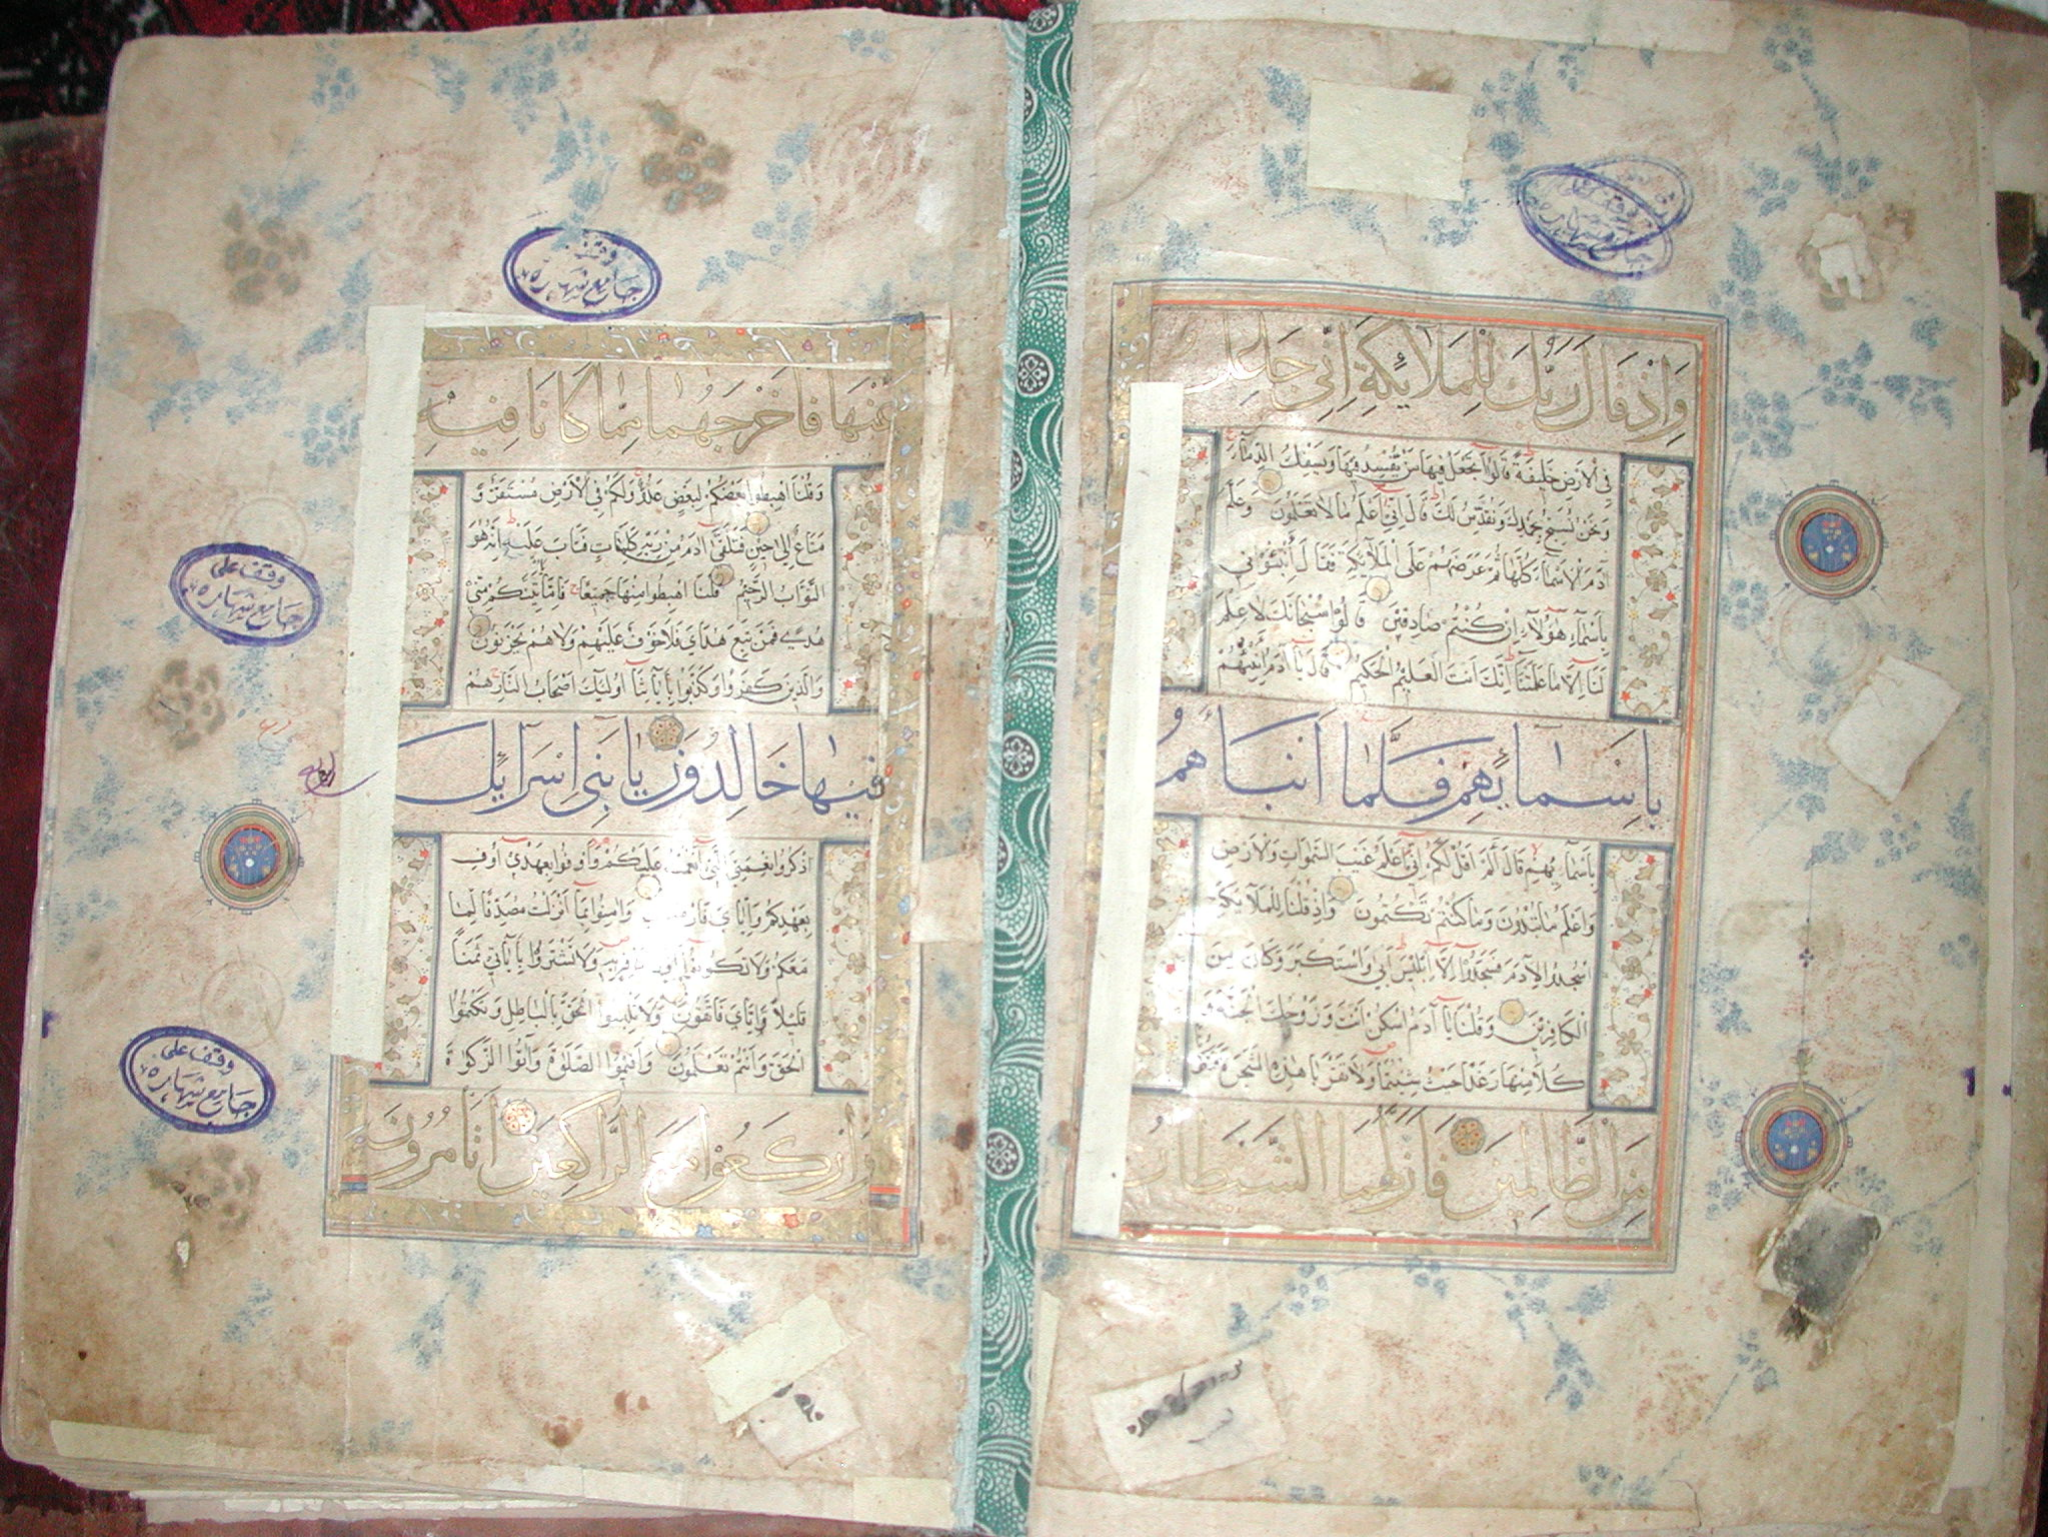 وقف
جامع شهاره
وَإِذْ قَالَ رَبُّكَ لِلْمَلَائِكَةِ إِنِّي جَاعِلٌ
فِي الْأَرْضِ خَلِيفَةً قَالُوا أَتَجْعَلُ فِيهَا مَنْ يُفْسِدُ فِيهَا وَيَسْفِكُ الدِّمَاءَ
وَنَحْنُ نُسَبِّحُ بِحَمْدِكَ وَنُقَدِّسُ لَكَ قَالَ إِنِّي أَعْلَمُ مَا لَا تَعْلَمُونَ وَعَلَّمَ
آدَمَ الْأَسْمَاءَ كُلَّهَا ثُمَّ عَرَضَهُمْ عَلَى الْمَلَائِكَةِ فَقَالَ أَنْبِئُونِي
بِأَسْمَاءِ هَؤُلَاءِ إِنْ كُنْتُمْ صَادِقِينَ قَالُوا سُبْحَانَكَ لَا عِلْمَ
لَنَا إِلَّا مَا عَلَّمْتَنَا إِنَّكَ أَنْتَ الْعَلِيمُ الْحَكِيمُ قَالَ يَا آدَمُ أَنْبِئْهُمْ
بِأَسْمَائِهِمْ فَلَمَّا أَنْبَأَهُمْ
بِأَسْمَائِهِمْ قَالَ أَلَمْ أَقُلْ لَكُمْ إِنِّي أَعْلَمُ غَيْبَ السَّمَوَاتِ وَالْأَرْضِ
وَأَعْلَمُ مَا تُبْدُونَ وَمَا كُنْتُمْ تَكْتُمُونَ وَإِذْ قُلْنَا لِلْمَلَائِكَةِ
اسْجُدُوا لِآدَمَ فَسَجَدُوا إِلَّا إِبْلِيسَ أَبَى وَاسْتَكْبَرَ وَكَانَ مِنَ
الْكَافِرِينَ وَقُلْنَا يَا آدَمُ اسْكُنْ أَنْتَ وَزَوْجُكَ الْجَنَّةَ وَ
كُلَا مِنْهَا رَغَدًا حَيْثُ شِئْتُمَا وَلَا تَقْرَبَا هَذِهِ الشَّجَرَةَ فَتَكُونَا
مِنَ الظَّالِمِينَ فَأَزَلَّهُمَا الشَّيْطَانُ
وقف
جامع شهاره
عَنْهَا فَأَخْرَجَهُمَا مِمَّا كَانَا فِيهِ
وَقُلْنَا اهْبِطُوا بَعْضُكُمْ لِبَعْضٍ عَدُوٌّ وَلَكُمْ فِي الْأَرْضِ مُسْتَقَرٌّ وَ
مَتَاعٌ إِلَى حِينٍ فَتَلَقَّى آدَمُ مِنْ رَبِّهِ كَلِمَاتٍ فَتَابَ عَلَيْهِ إِنَّهُ هُوَ
التَّوَّابُ الرَّحِيمُ قُلْنَا اهْبِطُوا مِنْهَا جَمِيعًا فَإِمَّا يَأْتِيَنَّكُمْ مِنِّي
هُدًى فَمَنْ تَبِعَ هُدَايَ فَلَا خَوْفٌ عَلَيْهِمْ وَلَا هُمْ يَحْزَنُونَ
وَالَّذِينَ كَفَرُوا وَكَذَّبُوا بِآيَاتِنَا أُولَئِكَ أَصْحَابُ النَّارِ هُمْ
فِيهَا خَالِدُونَ يَا بَنِي إِسْرَائِيلَ
اذْكُرُوا نِعْمَتِيَ الَّتِي أَنْعَمْتُ عَلَيْكُمْ وَأَوْفُوا بِعَهْدِي أُوفِ
بِعَهْدِكُمْ وَإِيَّايَ وَآمِنُوا بِمَا أَنْزَلْتُ مُصَدِّقًا لِمَا
مَعَكُمْ وَلَا تَكُونُوا وَلَا تَشْتَرُوا بِآيَاتِي ثَمَنًا
قَلِيلًا وَإِيَّايَ فَاتَّقُونِ وَلَا تَلْبِسُوا الْحَقَّ بِالْبَاطِلِ وَتَكْتُمُوا
الْحَقَّ وَأَنْتُمْ تَعْلَمُونَ وَأَقِيمُوا الصَّلَوٰةَ وَآتُوا الزَّكَوٰةَ
وَارْكَعُوا مَعَ الرَّاكِعِينَ أَتَأْمُرُونَ
وقف على
جامع شهاره
وقف على
جامع شهاره